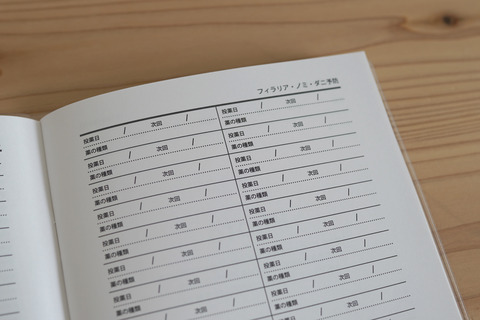 フィラリア・ノミ・ダニ予防
投薬日 / 次回 /
薬の種類
投薬日 / 次回 /
薬の種類
投薬日 / 次回 /
薬の種類
投薬日 / 次回 /
薬の種類
投薬日 / 次回 /
薬の種類
投薬日 / 次回 /
薬の種類
投薬日 / 次回 /
薬の種類
次回 /
投薬日 / 次回 /
薬の種類
投薬日 / 次回 /
薬の種類
投薬日 / 次回 /
薬の種類
投薬日 / 次回 /
薬の種類
投薬日 / 次回 /
薬の種類
投薬日 / 次回 /
薬の種類
投薬日 / 次回 /
薬の種類
投薬日 / 次回 /
薬の種類
次回 /